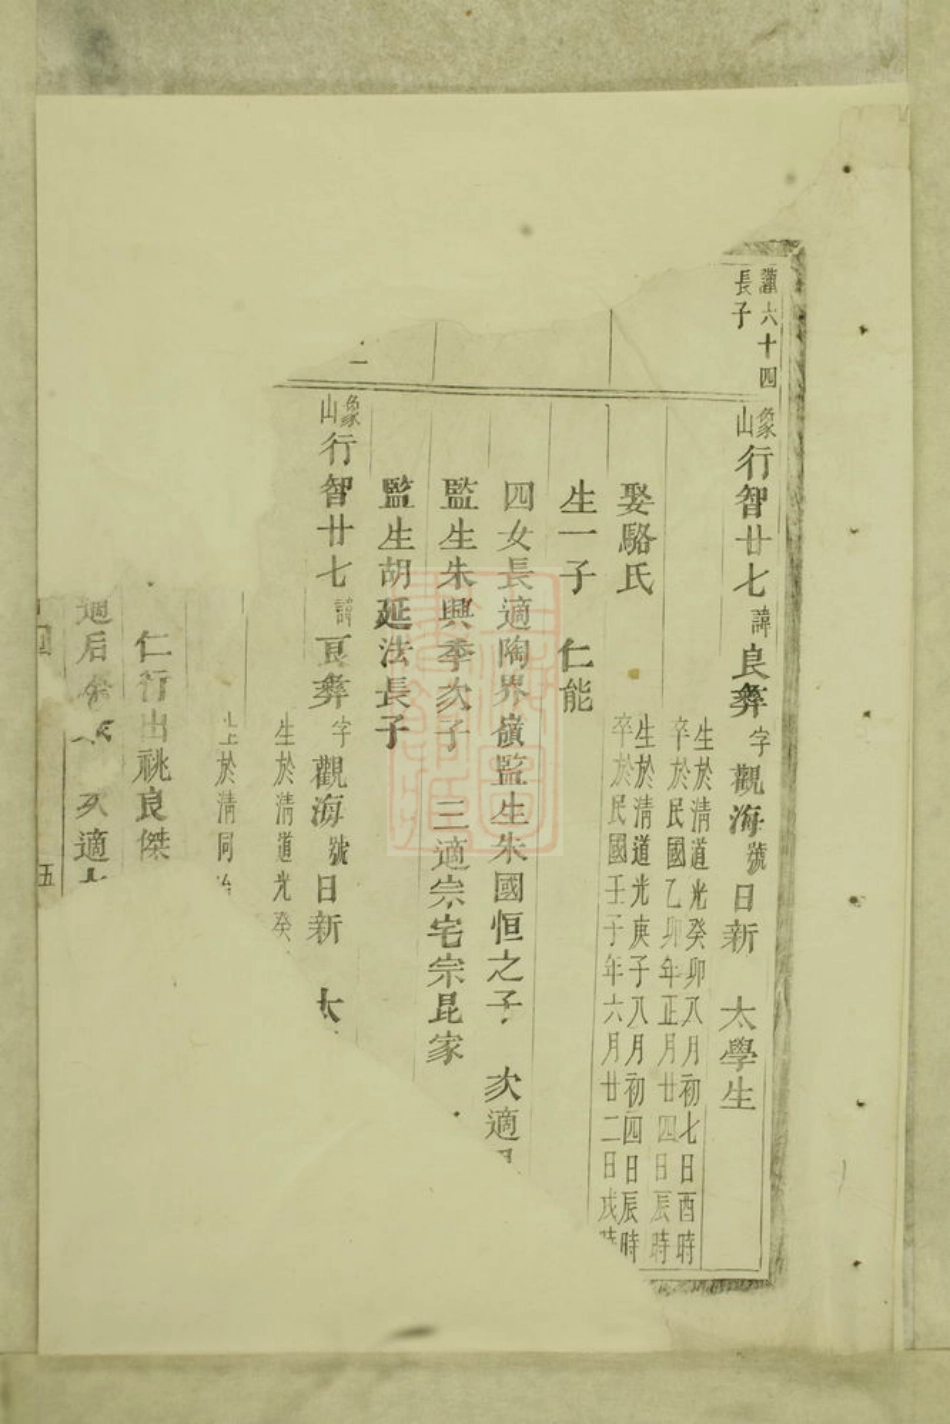 六十四
長子
象山行智廿七諱良彝字觀海號日新 太學生
生於清道光癸卯八月初七日酉時
卒於民國乙卯年正月廿四日辰時
娶駱氏
生於清道光庚子八月初四日辰時
卒於民國壬子年六月廿二日戌時
生一子 仁能
四女長適陶界嶺監生朱國恒之子 次適
監生朱興季次子 三適宗宅宗昆家
監生胡延法長子
象山行智廿七諱良彝字觀海號日新 太
生於清道光癸
於清同治
仁行出祧良傑
適后余 次適
五